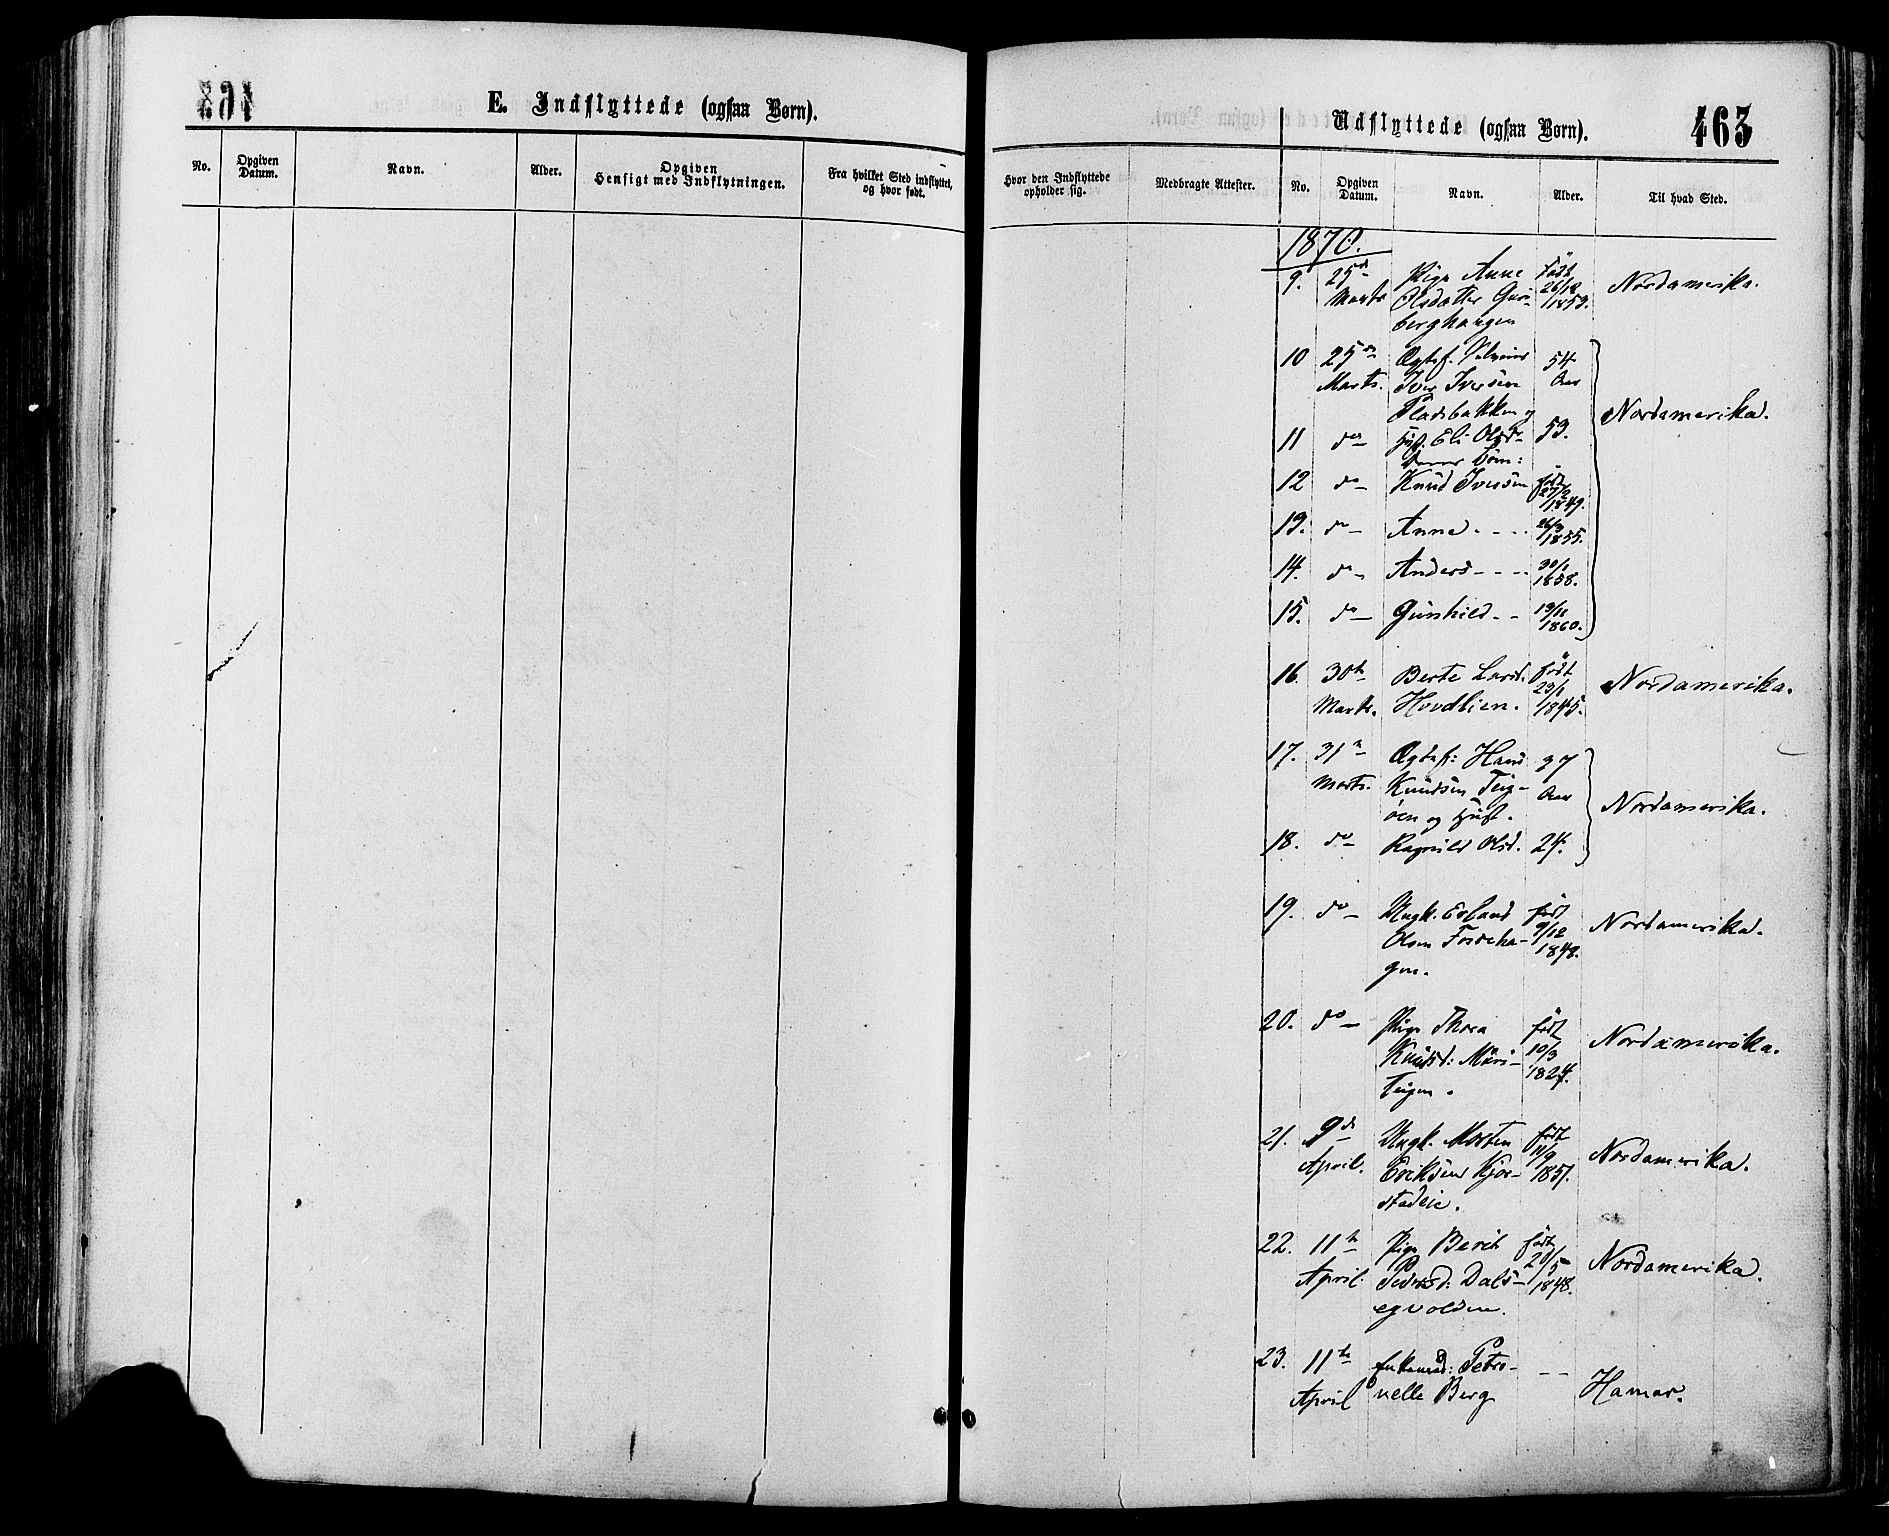 E. Indflyttede (ogsaa Børn).
No.
Opgiven Datum.
Navn.
Alder.
Opgiven Hensigt med Indflytningen.
Fra hvilket Sted indflyttet, og hvor født.
Udflyttede (ogsaa Børn).
463
Hvor den Indflyttede opholder sig.
Medbragte Attester.
No.
Opgiven Datum.
Navn.
Alder.
Til hvad Sted.
1870.
9. 25de Pige Anne født Nordamerika.
Marts Olsdatter 26/12
berghaugen 1853.
10 25de Ægtef. 54
Marts. Iver Iversen Aar
Pladsbakken og Nordamerika.
11 do Hust. Eli Olsd. 53.
deres Børn:
12 do Knud Iversen født 1849.
13. do Anne 26/3 1855.
14. do Anders 30/1 1858.
15. do Gunhild 1860.
16. 30te Berte Larsd. født Nordamerika.
Marts. Hovdlien. 23/1 1845.
17. 31te Ægtef: Hans 27
Marts. Knudsen Teig- Aar Nordamerika.
øen og Hust.
18. do Ragnild Olsd. 24.
19. do Ungk. Erland født Nordamerika.
Olsen Fordeha- 9/12 1848.
gen.
20. do Pige Thora født Nordamerika.
Knudsd: Muri- 10/3
teigen. 1824.
21. 9de Ungk. Morten født Nordamerika.
April. Eriksen Kjør- 11/9 1851.
stadeie.
22. 11te Pige Berit født Nordamerika.
April. Pedersd: Dals- 20/5 1848.
egvolden.
23. 11te Petro- -- Hamar.
April nelle Berg